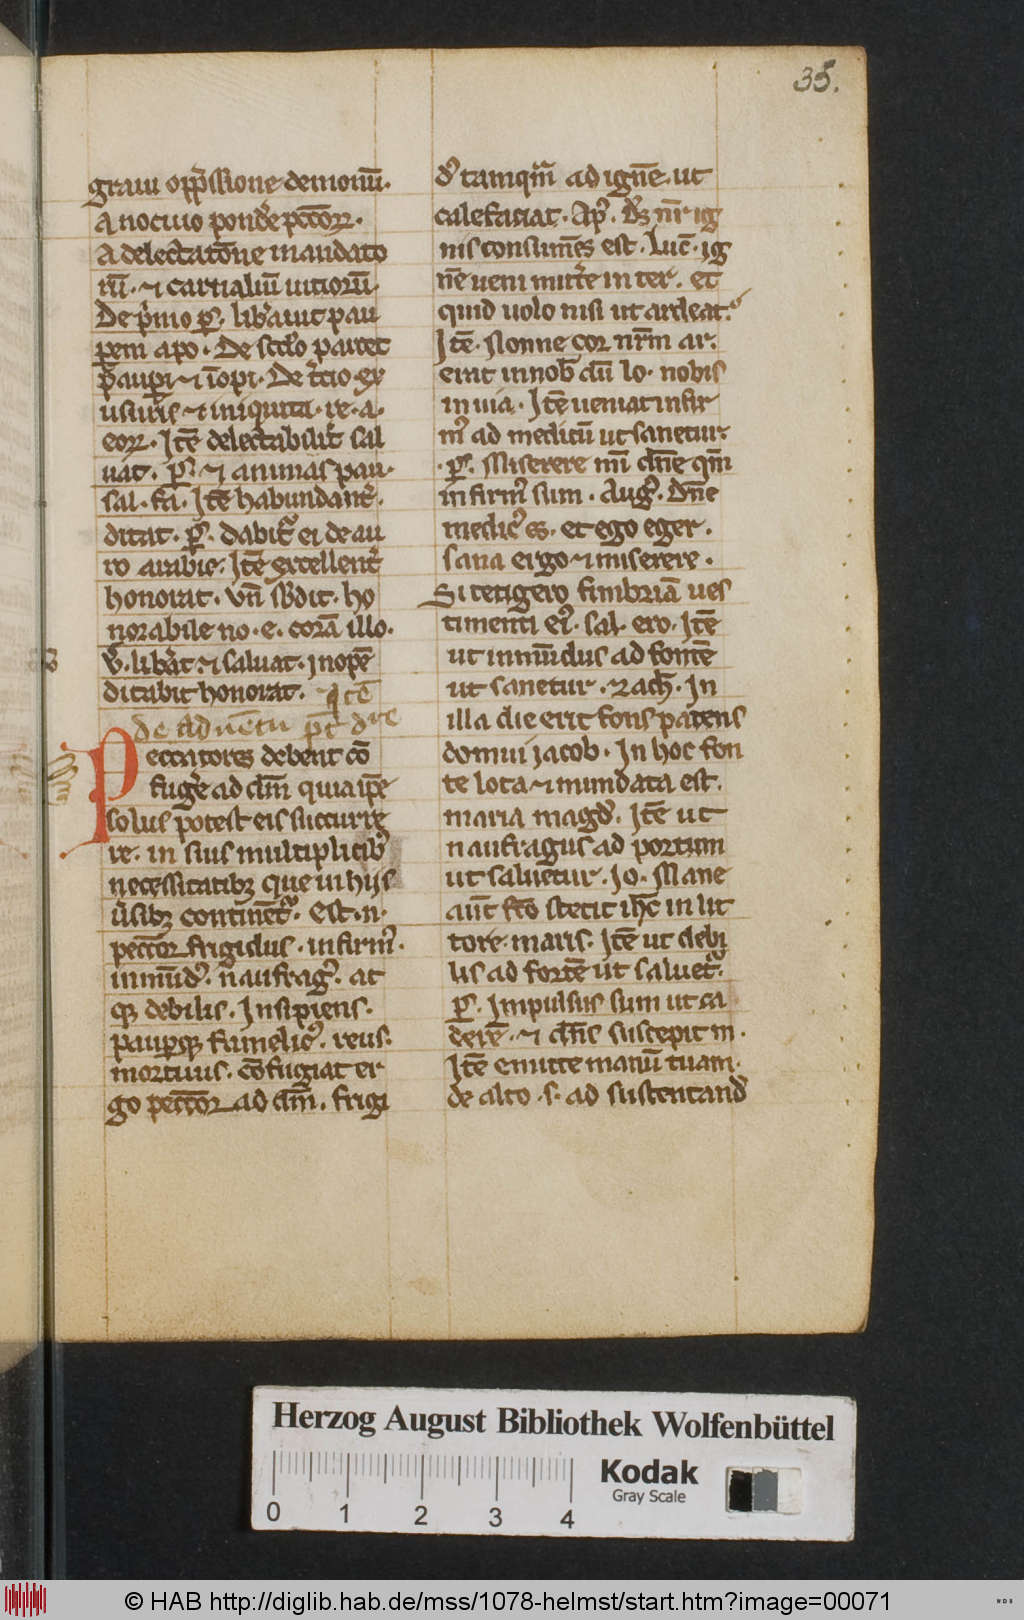 35.
graui opp̄ssione demonū.
A nociuo pond'e pcc̄oꝝ.
A delectatōne mandato
rū. ⁊ carnaliū uitioꝝ.
De p'mo p̄s. lib'auit pau
pem a po. De sc̄do parcet
paup̄i ⁊ īopi. De t'cio ex
usuris ⁊ iniquita. re. a.
eoꝝ. Itē delectabilit' sal
uat. p̄s. ⁊ animas pau.
sal. fa. Itē habundant'.
ditat. p̄s. dabit' ei de au
ro arabie. Itē excellent'
honorat. vn̄ sb'dit. ho
norabile no. e. corā illo.
v'. lib'at. ⁊ saluat. inopē
ditabit honorat. Itē
de aduētu
Peccatores debent cō
fug'e ad dm̄ quia ip̄e
solus potest eis succurre
re. in suis multiplicib'
necessitatibꝫ que in hijs
v'sibꝫ continēt'. Est. n.
pecc̄or frigidus. infirm'.
inmūd'. naufrag'. at
qꝫ debilis. Insipiens.
paup̄qꝫ famelic'. reus.
mortuus. cōfugiat er
go pecc̄or ad dm̄. frigi
d' tamqm̄ ad ignē. ut
calefaciat. Ap'. d's nr̄ ig
nis consumēs est. Luc̄. ig
nē ueni mitt'e in ter. et
quid uolo nisi ut ardeat.
Itē. Nonne cor nr̄m ar.
erat in nob̄ dū lo. nobis
in uia. Itē ueniat infir
m' ad medicū ut sanetur.
p̄s. Miserere mī dn̄e qm̄
infirm' sum. Aug'. Dn̄e
medic' es. et ego eger.
sana ergo ⁊ miserere.
Si tetigero fimbriā ues
timenti ei'. sal. ero. Itē
ut inmūdus ad fontē
ut sanetur. zach̄. In
illa die erit fons patens
domui jacob. In hoc fon
te lota ⁊ mundata est.
maria magd'. Itē ut
naufragus ad portum
ut saluetur. Jo. Mane
aut̄ fc̄o stetit ih̄c in lit
tore maris. Itē ut debi
lis ad fortē ut saluet'.
p̄s. Impulsus sum ut ca
derē. ⁊ dn̄s suscepit m.
Itē emitte manū tuam.
de alto. s. ad sustentand'
Herzog August Bibliothek Wolfenbüttel
Kodak
Gray Scale
0 1 2 3 4
© HAB http://diglib.hab.de/mss/1078-helmst/start.htm?image=00071